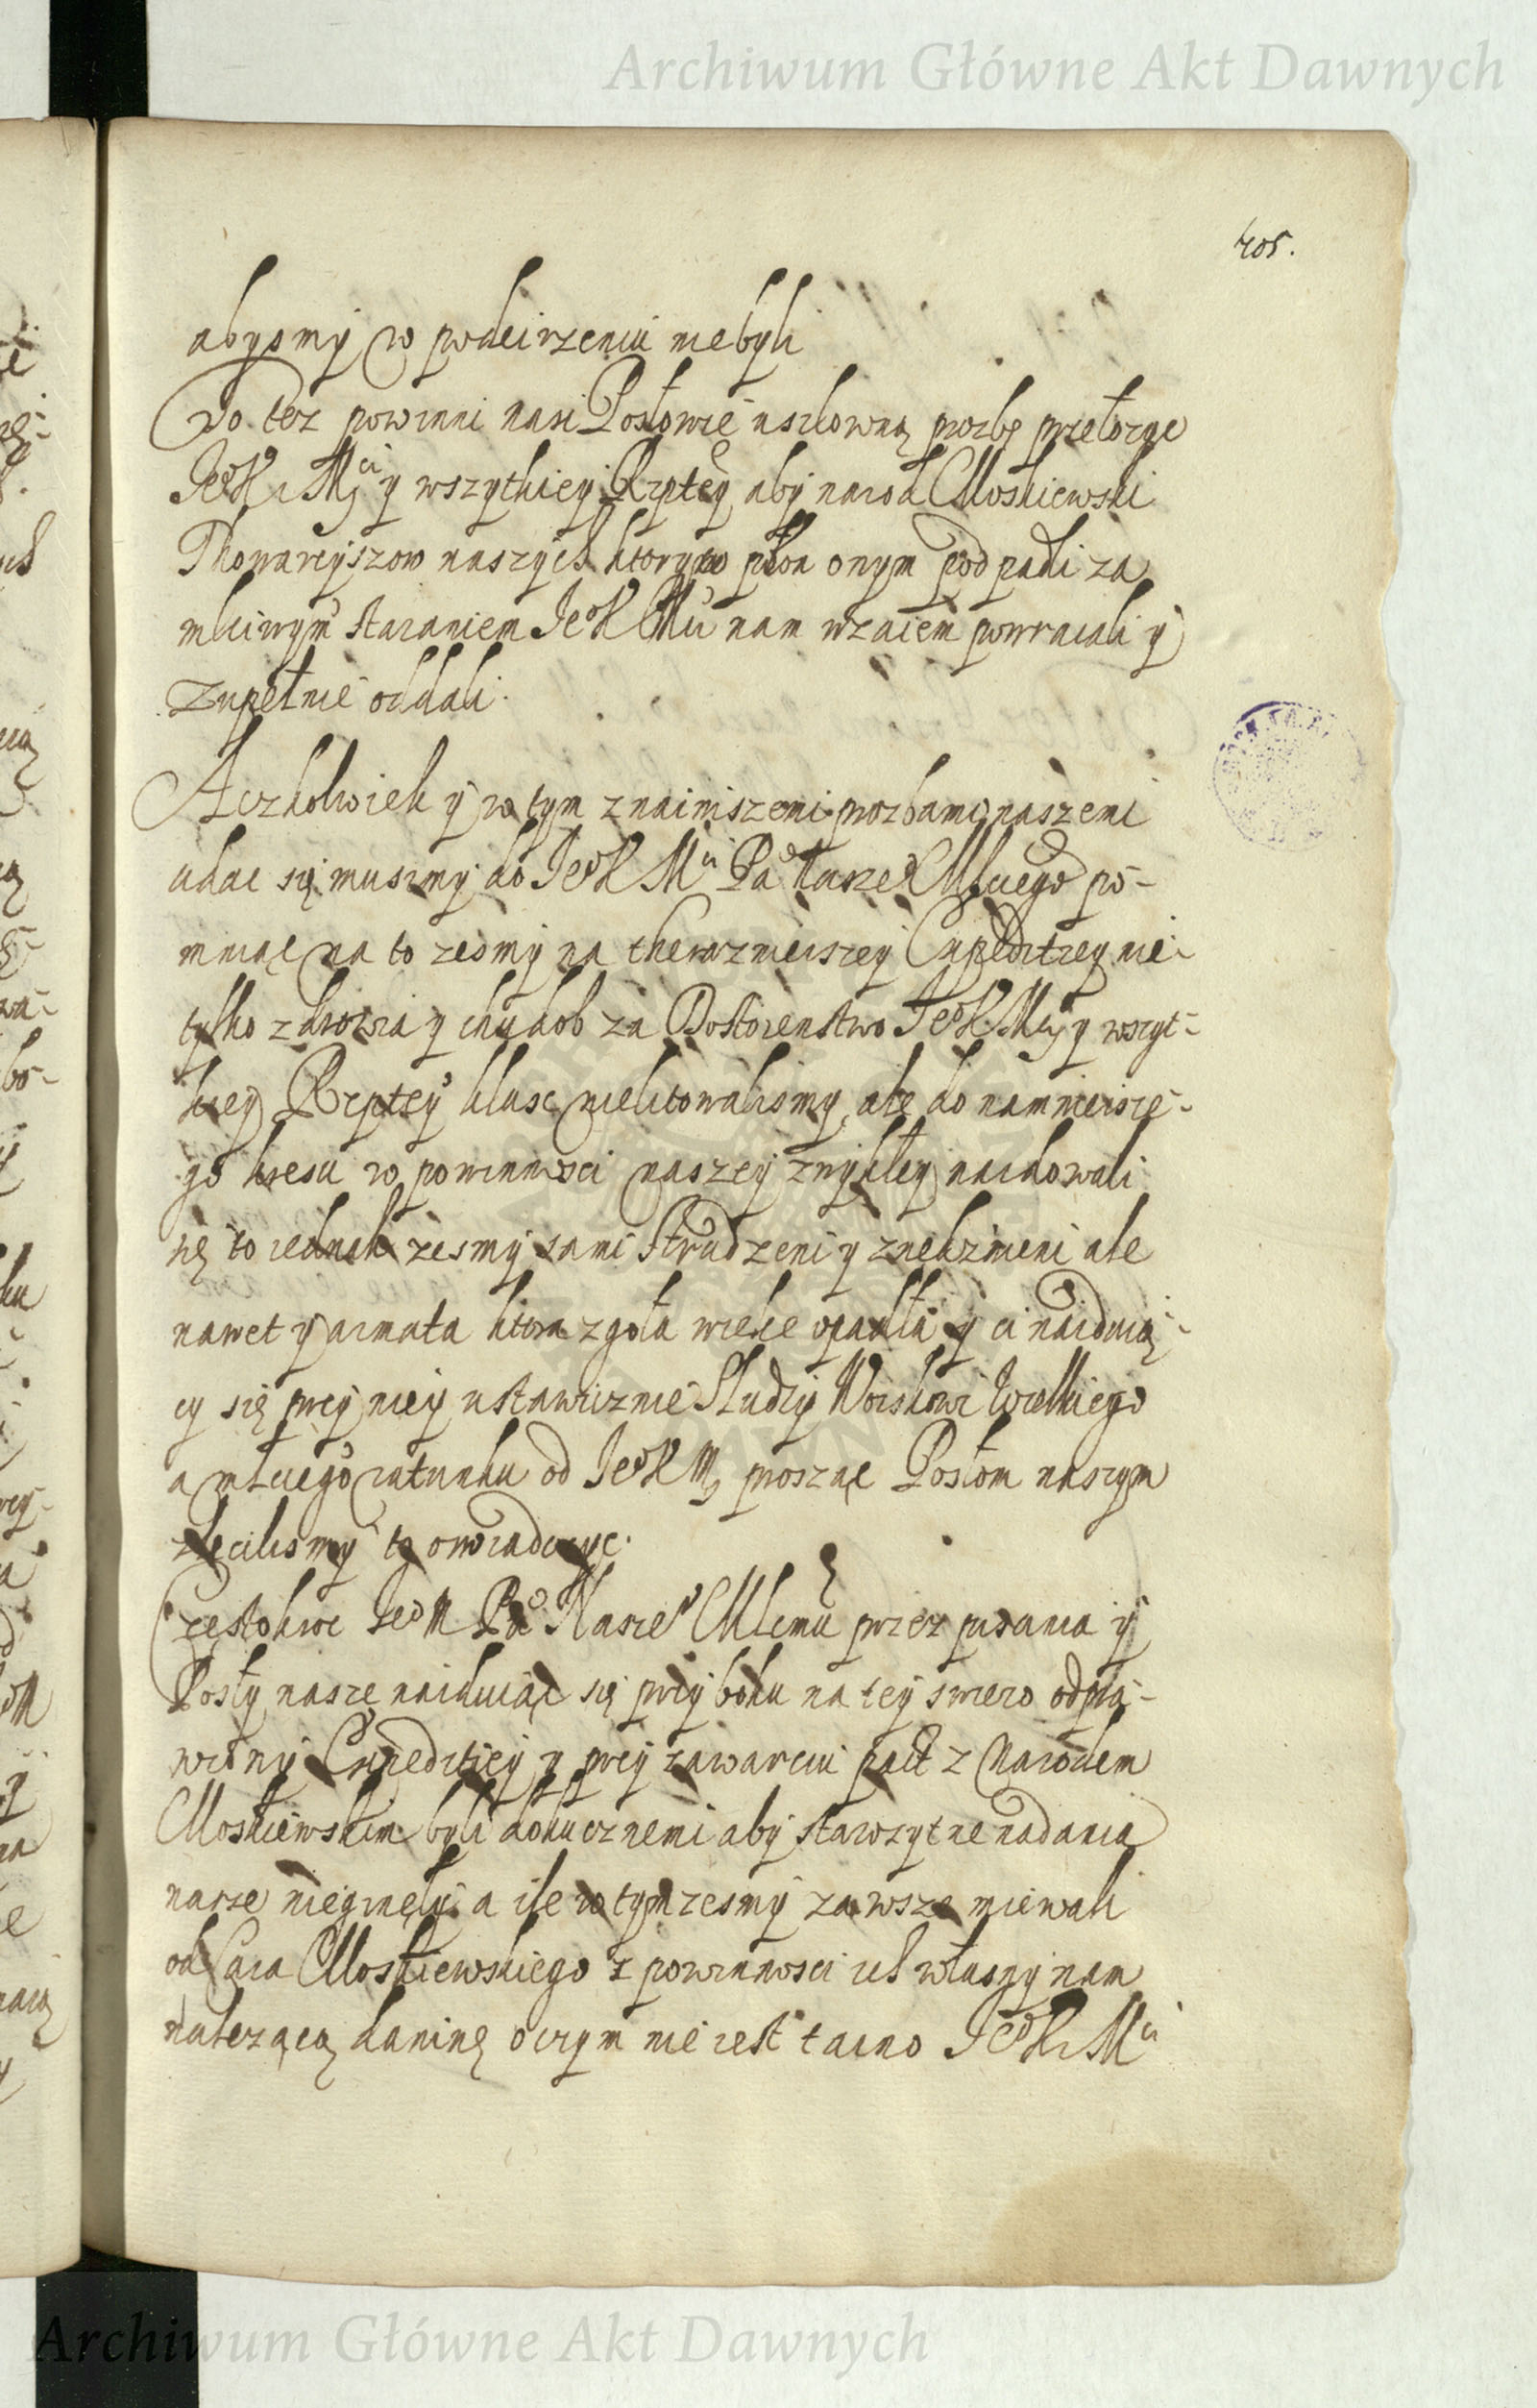 Archiwum Główne Akt Dawnych
405.
abysmy w podeirzeniu niebyli
Do tez powinni nasi Posłowie usilowną prozbę przełozyc
Je° K Mci y wszytkiey Rzptey aby narod Moskiewski
Thowarzyszow naszych ktorzy w plon onym pod padli za
mlciwym staraniem Je° K Mci nam wzaiem powracali y
zupełnie oddali.
Aczkolwiek y w tym znainiszemi prozbami naszemi
udac się musimy do Je° K Mci Pa Nasze° Mlciwego po-
mniąc na to zesmy na therazniejszey Expeditiey nie-
tylko zdrowia y chudob za Dostoienstwo Je° K Mci y wszyt-
kiey Rzptey kłasc nielitowalismy ale do namnieisze-
go kresu w powinnosci naszey zwykłey naidowali
się to iednak zesmy sami strudzeni y znędznieni ale
nawet y armata ktora zgoła wiele opadła y ci naiduią-
cy się przy niey ustawicznie Słudzy Woiskowi wielkiego
a młciwego ratunku od Je° K M prosząc Posłom naszym
zlecilismy to oswiadczyc.
Częstokroc Je° K M Pa° Nasze° Mlemu przez pisania y
Posły nasze naiduiąc się przy boku na tey swiezo odpra-
wiony Expeditiey y przy zawarciu pact z Narodem
Moskiewskim byli dokucznemi aby starozytne nadania
nasze nieginęły a ile w tym zesmy zawsze miewali
od Cara Moskiewskiego z powinnosci ich własny nam
należącą daninę o czym nie iest tacno Je° K Mci
Archiwum Główne Akt Dawnych